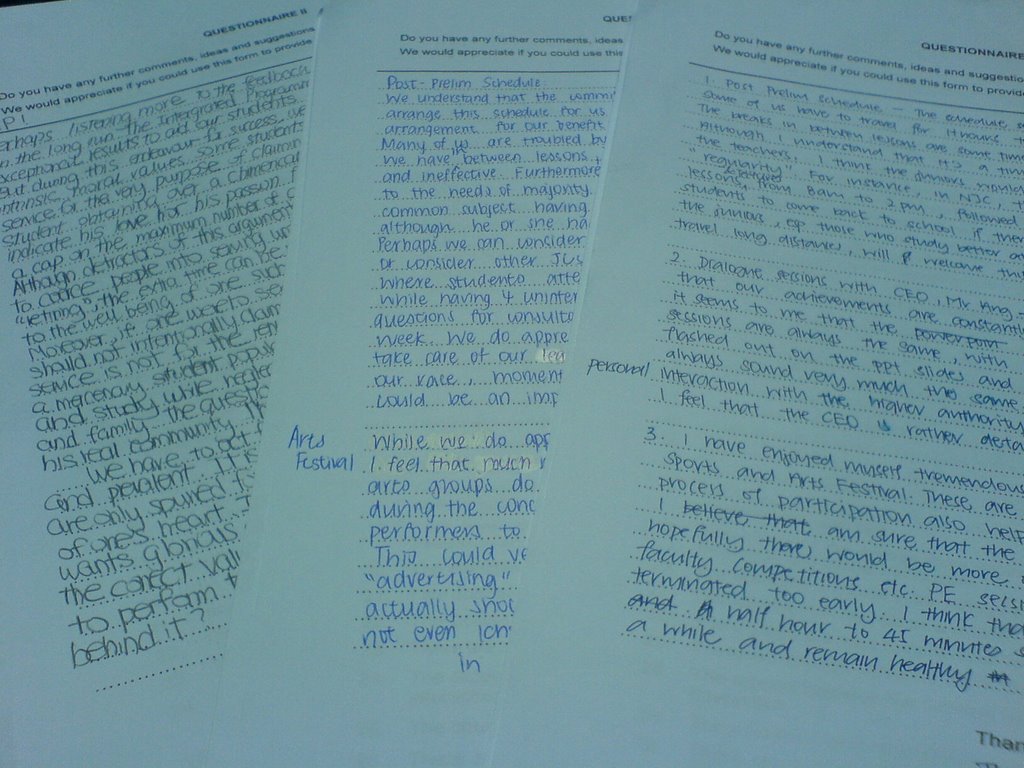 QUESTIONNAIRE II
Do you have any further comments, ideas and suggestions
We would appreciate if you could use this form to provide
P1
Perhaps listening more to the feedback
in the long run. the Integrated Programm
exceptional results to aid our students
But during this endeavour for success, we
intrinsic moral values. Some students
service for the very purpose of claimin
student obtaining over a chimerical
indicate his love for his passion f
a cap on the maximum number of
Although detractors of this argument
to coerce people into serving
"jetting", the extra time can be
to the well being of one such
Moreover, if one were to se
should not intentionally claim
service is not for the rep
a mercenary student popul
and study while neglec
and family. the questi
his real community, th
We have to act
and prevalent. It is
are only spurred
of one's heart.
wants glorious
the correct val
to perform t
behind it?
QUE
Do you have any further comments, ideas
We would appreciate if you could use this
Post-Prelim Schedule
We understand that the commi
arrange this schedule for us
arrangement for our benefit
Many of us are troubled by
we have in between lessons
and ineffective. Furthermore
to the needs of majority.
common subject having
although he or she ha
Perhaps we can consider
or consider other JCs
where students atte
while having 4 uninter
questions for consulta
week. We do appre
take care of our lea
our race, moment
could be an imp
Arts
Festival
While we do app
I feel that much
arts groups do
during the conc
performers to
This could ve
"advertising"
actually shot
not even ich
in
QUESTIONNAIRE
Do you have any further comments, ideas and suggestio
We would appreciate if you could use this form to provid
1. Post Prelim schedule - The schedule
some of us have to travel for 1+ hours
The breaks in between lessons are some time
Although I understand that it's a tim
the teachers. I think the juniors would
"regularity". For instance, in NJC, t
lessons from 8am to 2pm, followed
students to come back to school if ther
the juniors, esp those who study better a
travel long distances, will welcome this
2. Dialogue sessions with CEO, Mr Ang -
that our achievements are constantl
It seems to me that the powerpoint
sessions are always the same, with
flashed out on the PPT slides and
always sound very much the same
personal interaction with the higher authority
I feel that the CEO is rather deta
3. I have enjoyed myself tremendous
Sports and Arts Festival. These are
process of participation also help
I believe that am sure that the
hopefully there would be more
faculty competitions etc. PE sessi
terminated too early. I think tha
and half hour to 45 minutes s
a while and remain healthy
Than